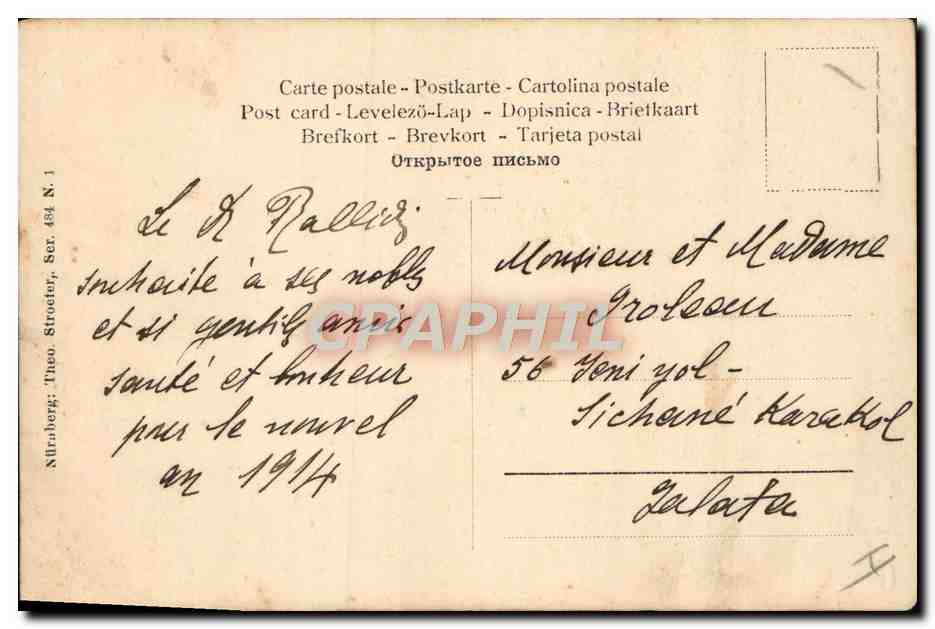 Carte postale - Postkarte - Cartolina postale
Post card - Levelező-Lap - Dopisnica - Briefkaart
Brefkort - Brevkort - Tarjeta postal
Открытое письмо
Nürnberg: Theo. Stroefer, Ser. 484 N. 1
Le
souhaite à ses nobles
et si gentils amis
santé et bonheur
pour le nouvel
an 1914
Monsieur et Madame
56 Yeni yol -
Sichané Karakol
Galata
CPAPHIL